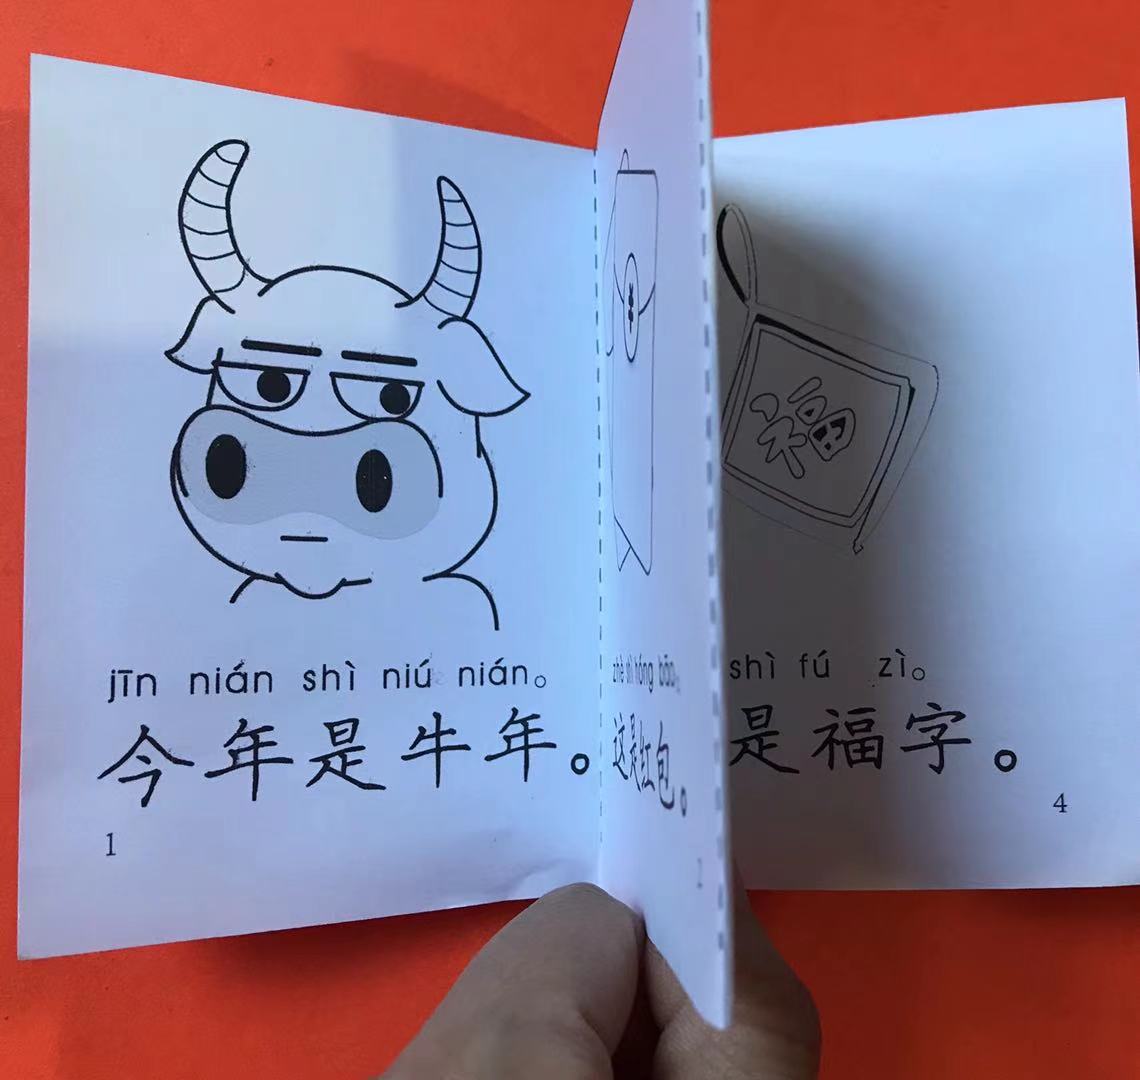 jīn nián shì niú nián。
今年是牛年。
1
zhè shì hóng bāo。
这是红包。
2
福
shì fú zì。
是福字。
4